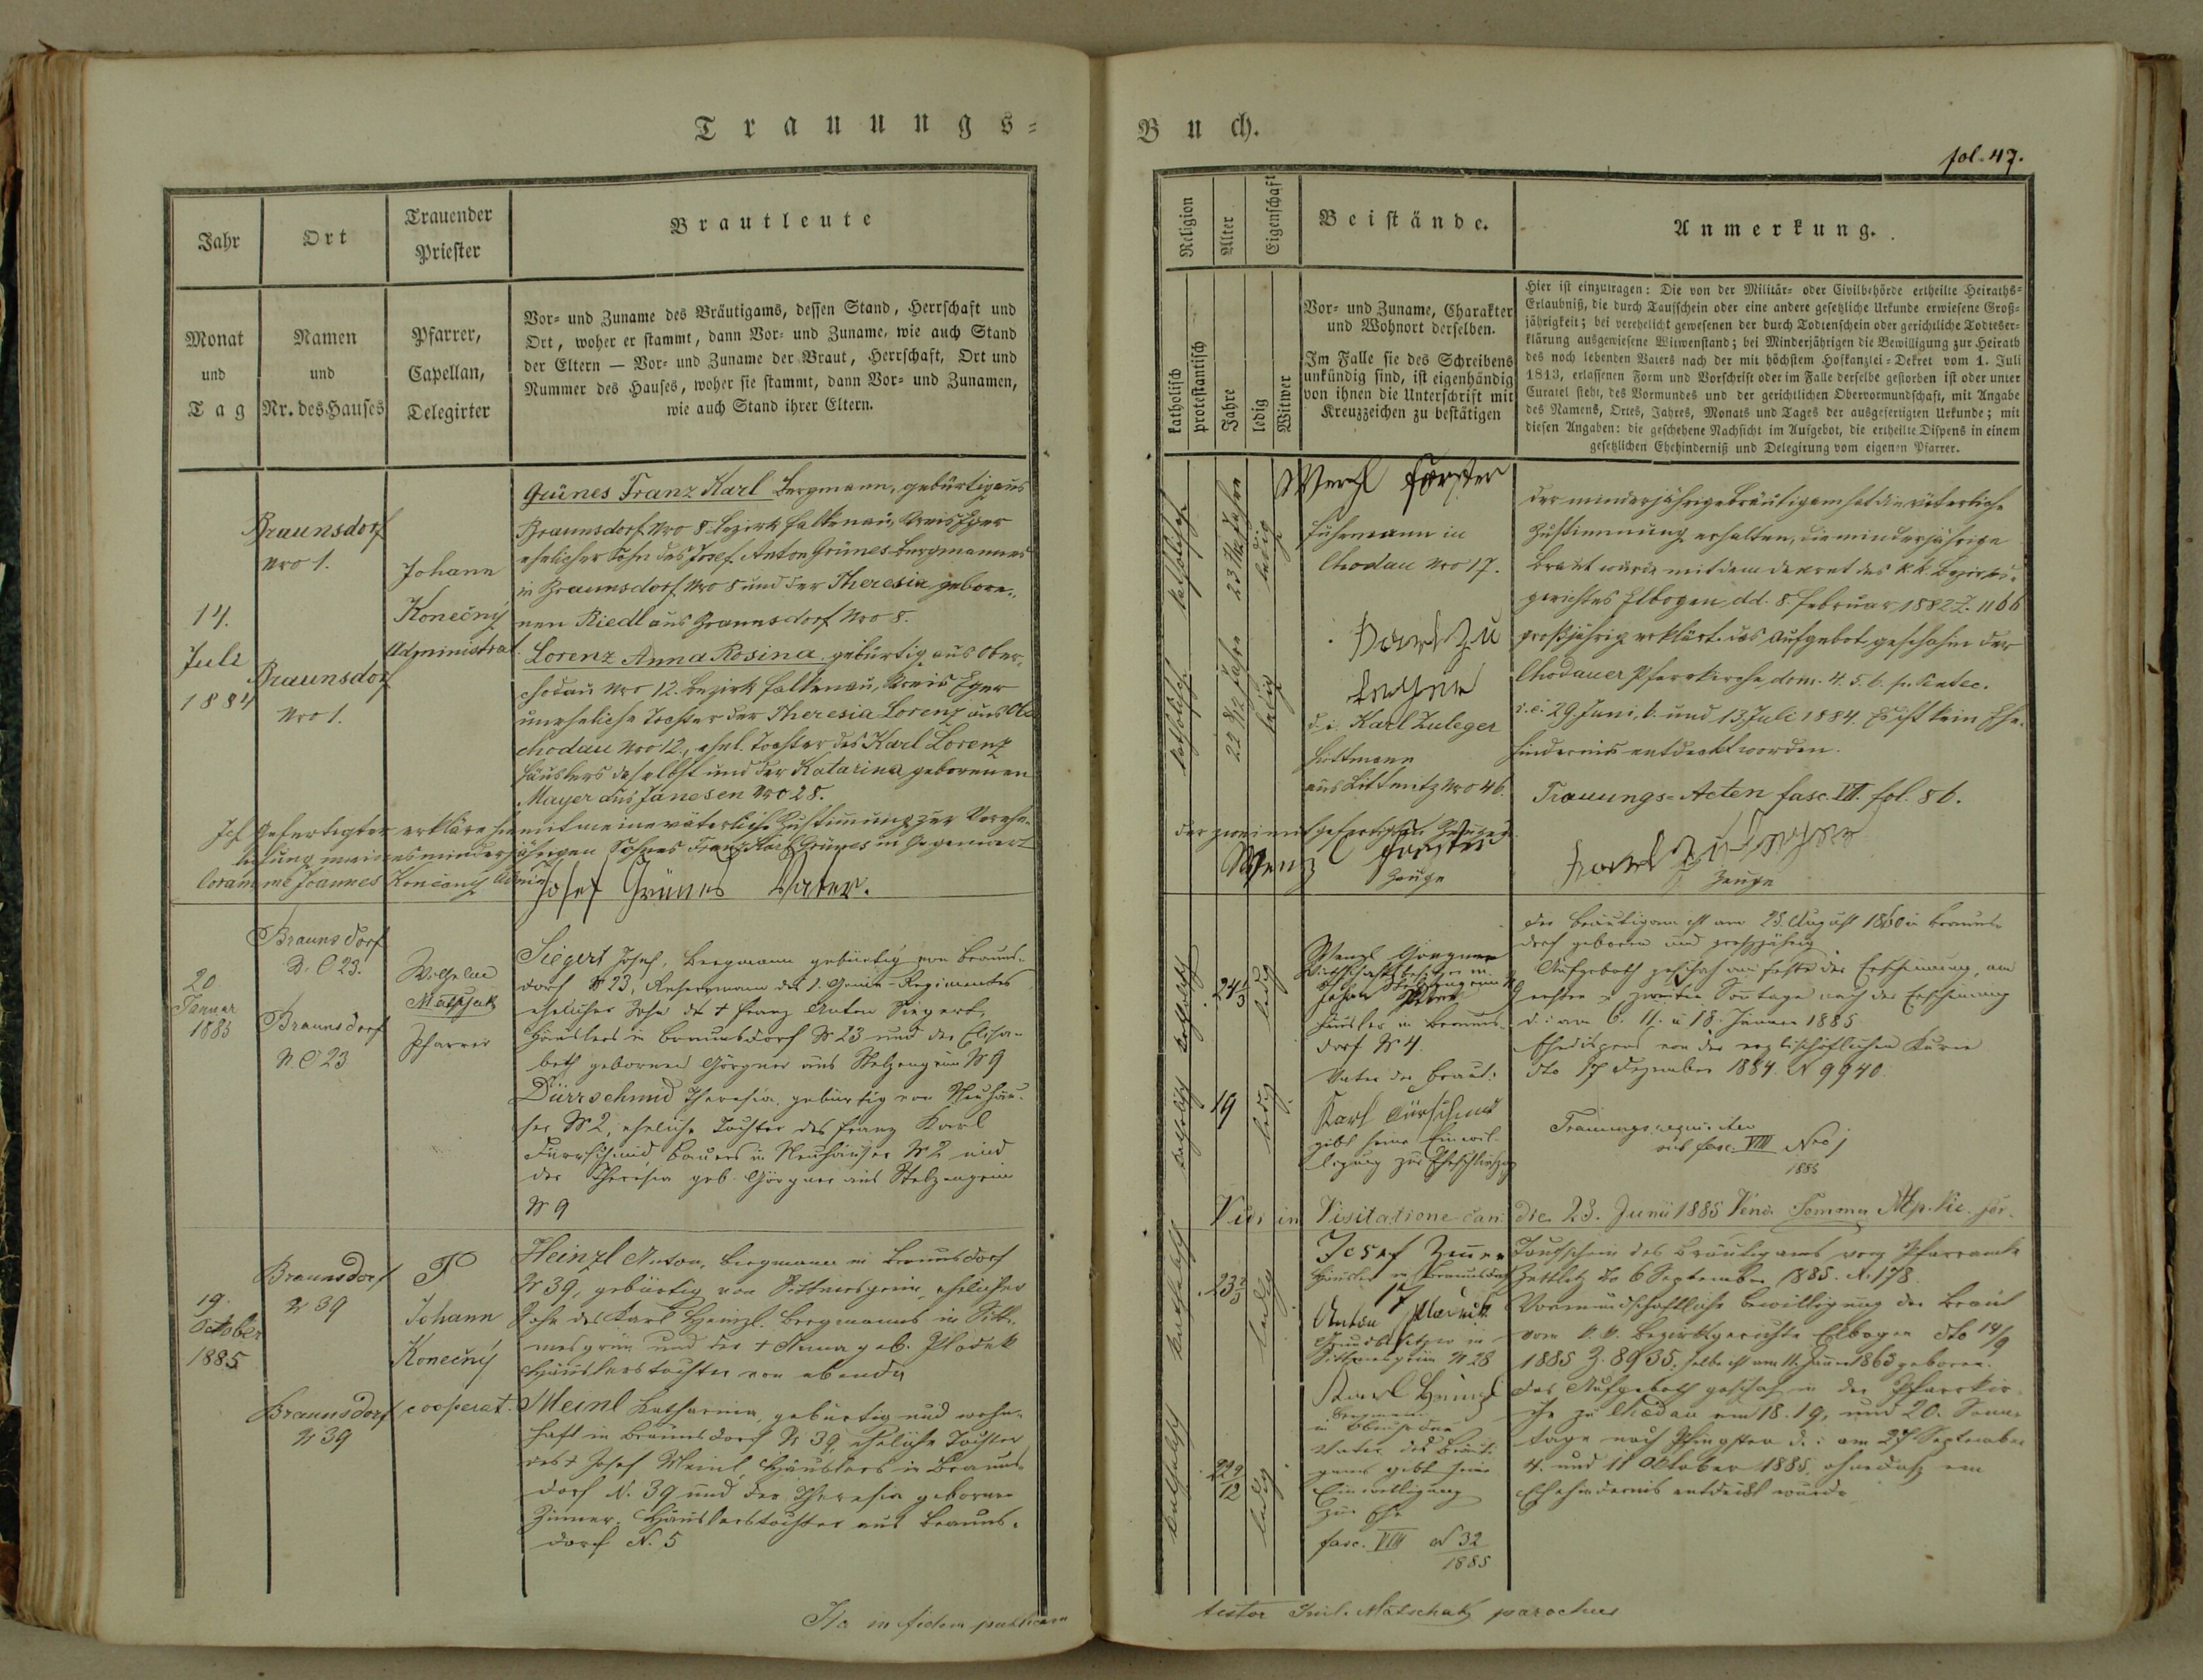 Trauungs=
Jahr
Ort
Trauender
Priester
Brautleute
Monat
und
Tag
Namen
und
Nr. des Hauses
Pfarrer,
Capellan,
Delegirter
Vor= und Zuname des Bräutigams, dessen Stand, Herrschaft und
Ort, woher er stammt, dann Vor= und Zuname, wie auch Stand
der Eltern — Vor= und Zuname der Braut, Herrschaft, Ort und
Nummer des Hauses, woher sie stammt, dann Vor= und Zunamen,
wie auch Stand ihrer Eltern.
14.
Juli
1884
Braunsdorf
Nro 1.
Braunsdorf
Nro 1.
Johann
Konečný
Administrat.
Grünes Franz Karl Bergmann, gebürtig aus
Braunsdorf Nro 8 Bezirk Falkenau, Kreis Eger
ehelicher Sohn des Josef Anton Grünes Bergmannes
in Braunsdorf Nro 8 und der Theresia gebore=
nen Riedl aus Braunsdorf Nro 8.
Lorenz Anna Rosina gebürtig aus Ober=
chodau Nro 12. Bezirk Falkenau, Kreis Eger
uneheliche Tochter der Theresia Lorenz aus Ob
chodau Nro 12., ehel. Tochter des Karl Lorenz
Häuslers daselbst und der Katarina geborenen
Mayer aus Janesen Nro 28.
Ich Gefertigter erkläre hiemit meine väterliche Zustimmung zur Verehe=
lichung meines minderjährigen Sohnes Franz Karl Grünes in Gegenwart
Coram me Joannes Konečný Admin
Josef Grünes Vater.
20
Januar
1885
Braunsdorf
N. C 23.
Braunsdorf
N. C 23
Wilhelm
Matschak
Pfarrer
Siegert Josef, Bergmann gebürtig von Brauns=
dorf N 23, Reservmann des 1. Genie-Regimentes
ehelicher Sohn des + Franz Anton Siegert,
Häuslers in Braunsdorf N 23 und der Elisa=
beth gebornen Görgner aus Stelzengrün N 9
Dürrschmid Theresia, gebürtig von Neuhäu=
ser N 2, eheliche Tochter des Franz Karl
Dürrschmid Bauers in Neuhäuser N 2 und
der Theresia geb. Görgner aus Stelzengrün
N 9
19.
October
1885
Braunsdorf
N 39
Braunsdorf
N 39
P
Johann
Konečný
cooperat.
Heinzl Anton, Bergmann in Braunsdorf
N 39, gebürtig von Dittmesgrün, ehelicher
Sohn des Karl Heinzl Bergmanns in Ditt=
mesgrün und der + Anna geb. Plodek
Häuslerstochter von ebenda
Meinl Katharina, gebürtig und wohn=
haft in Braunsdorf N 39, eheliche Tochter
des + Josef Meinl, Häuslers in Brauns=
dorf N. 39 und der Theresia gebornen
Zimer, Häuslerstochter aus Brauns=
dorf N. 5
Ita in fidem publicam
Buch.
fol. 47.
Religion
Alter
Eigenschaft
Beistände.
Anmerkung.
katholisch
protestantisch
Jahre
ledig
Witwer
Vor= und Zuname, Charakter
und Wohnort derselben.
Im Falle sie des Schreibens
unkündig sind, ist eigenhändig
von ihnen die Unterschrift mit
Kreuzzeichen zu bestätigen
Hier ist einzutragen: Die von der Militär= oder Civilbehörde ertheilte Heiraths=
Erlaubniß, die durch Taufschein oder eine andere gesetzliche Urkunde erwiesene Groß=
jährigkeit; bei verehelicht gewesenen der durch Todtenschein oder gerichtliche Todteser=
klärung ausgewiesene Witwenstand; bei Minderjährigen die Bewilligung zur Heirath
des noch lebenden Vaters nach der mit höchstem Hofkanzlei=Dekret vom 1. Juli
1813, erlassenen Form und Vorschrift oder im Falle derselbe gestorben ist oder unter
Curatel steht, des Vormundes und der gerichtlichen Obervormundschaft, mit Angabe
des Namens, Ortes, Jahres, Monats und Tages der ausgefertigten Urkunde; mit
diesen Angaben: die geschehene Nachsicht im Aufgebot, die ertheilte Dispens in einem
gesetzlichen Ehehinderniß und Delegirung vom eigenen Pfarrer.
katholisch
ledig
katholisch
22 8/12 Jahre
ledig
Wenzl Forster
Fuhrmann in
Chodau Nro 17.
Karl Zu
leger
d. i. Karl Zuleger
Huttmann
aus Littmitz Nro 46.
Der minderjährige Bräutigam hat die väterliche
Zustimmung erhalten, die minderjährige
Braut wurde mit dem Dekret des k.k. Bezirks=
gerichtes Elbogen dd. 8. Februar 1882 Z. 1166
großjährig erklärt. Das Aufgebot geschah in der
Chodauer Pfarrkirche, dom. 4. 5. 6. p. Pentec.
i. e. 29. Juni, 6. und 13. Juli 1884. Es ist kein Ehe=
hinderniss entdeckt worden.
Trauungs=Acten fasc. VII. fol. 86.
der zwei mitgefertigten Zeugen.
Wenzl Forster
Zeuge
Karl Zuleger
Zeuge
katholisch
24
ledig
katholisch
19
ledig
Wenzl Görgner
Wirthschaftsbesitzer in
Stelzengrün N 9
Johan
Häusler in Brauns=
dorf N 4.
Vater der Braut:
Karl Dürschmid
gibt seine Einwil=
ligung zur Eheschließung
Der Bräutigam ist am 23. August 1860 in Brauns=
dorf geboren und großjährig
Aufgeboth geschah am Feste der Erscheinung, am
ersten u zweiten Sontage nach der Erscheinung
d. i. am 6. 11. u 18. Jänner 1885.
Ehedispens von der erzbischöflichen Kurie
dto 17 Dezember 1884. N 9940.
Trauungsrequisiten
sub fasc. VIII Nro 1
1885
Vidi in Visitatione can: die 23. Junii 1885
katholisch
23
ledig
katholisch
22 9/12
ledig
Josef Zimer
Häusler in Braunsdorf
17
Anton Plodek
Grundbesitzer in
Dittmesgrün N 28
Karl Heinzl
Bergmann
in
Vater des Bräuti=
gams gibt seine
Einwilligung
zur Ehe
fasc. VIII N 32
1885
Taufschein des Bräutigams vom Pfarramte
Zettlitz dto 6 September 1885. N. 178.
Vormundschaftliche Bewilligung der Braut
vom k. k. Bezirksgerichte Elbogen dto 14/9
1885 Z. 8935. selbe ist am 11. Jänner 1863 geboren.
Das Aufgeboth geschah in der Pfarrkir=
che zu Chodau am 18. 19. und 20. Sonn=
tage nach Pfingsten d. i. am 27 September
4. und 11 Oktober 1885, ohnedaß ein
Ehehindernis entdeckt wurde
testor Guil. Matschak parochus